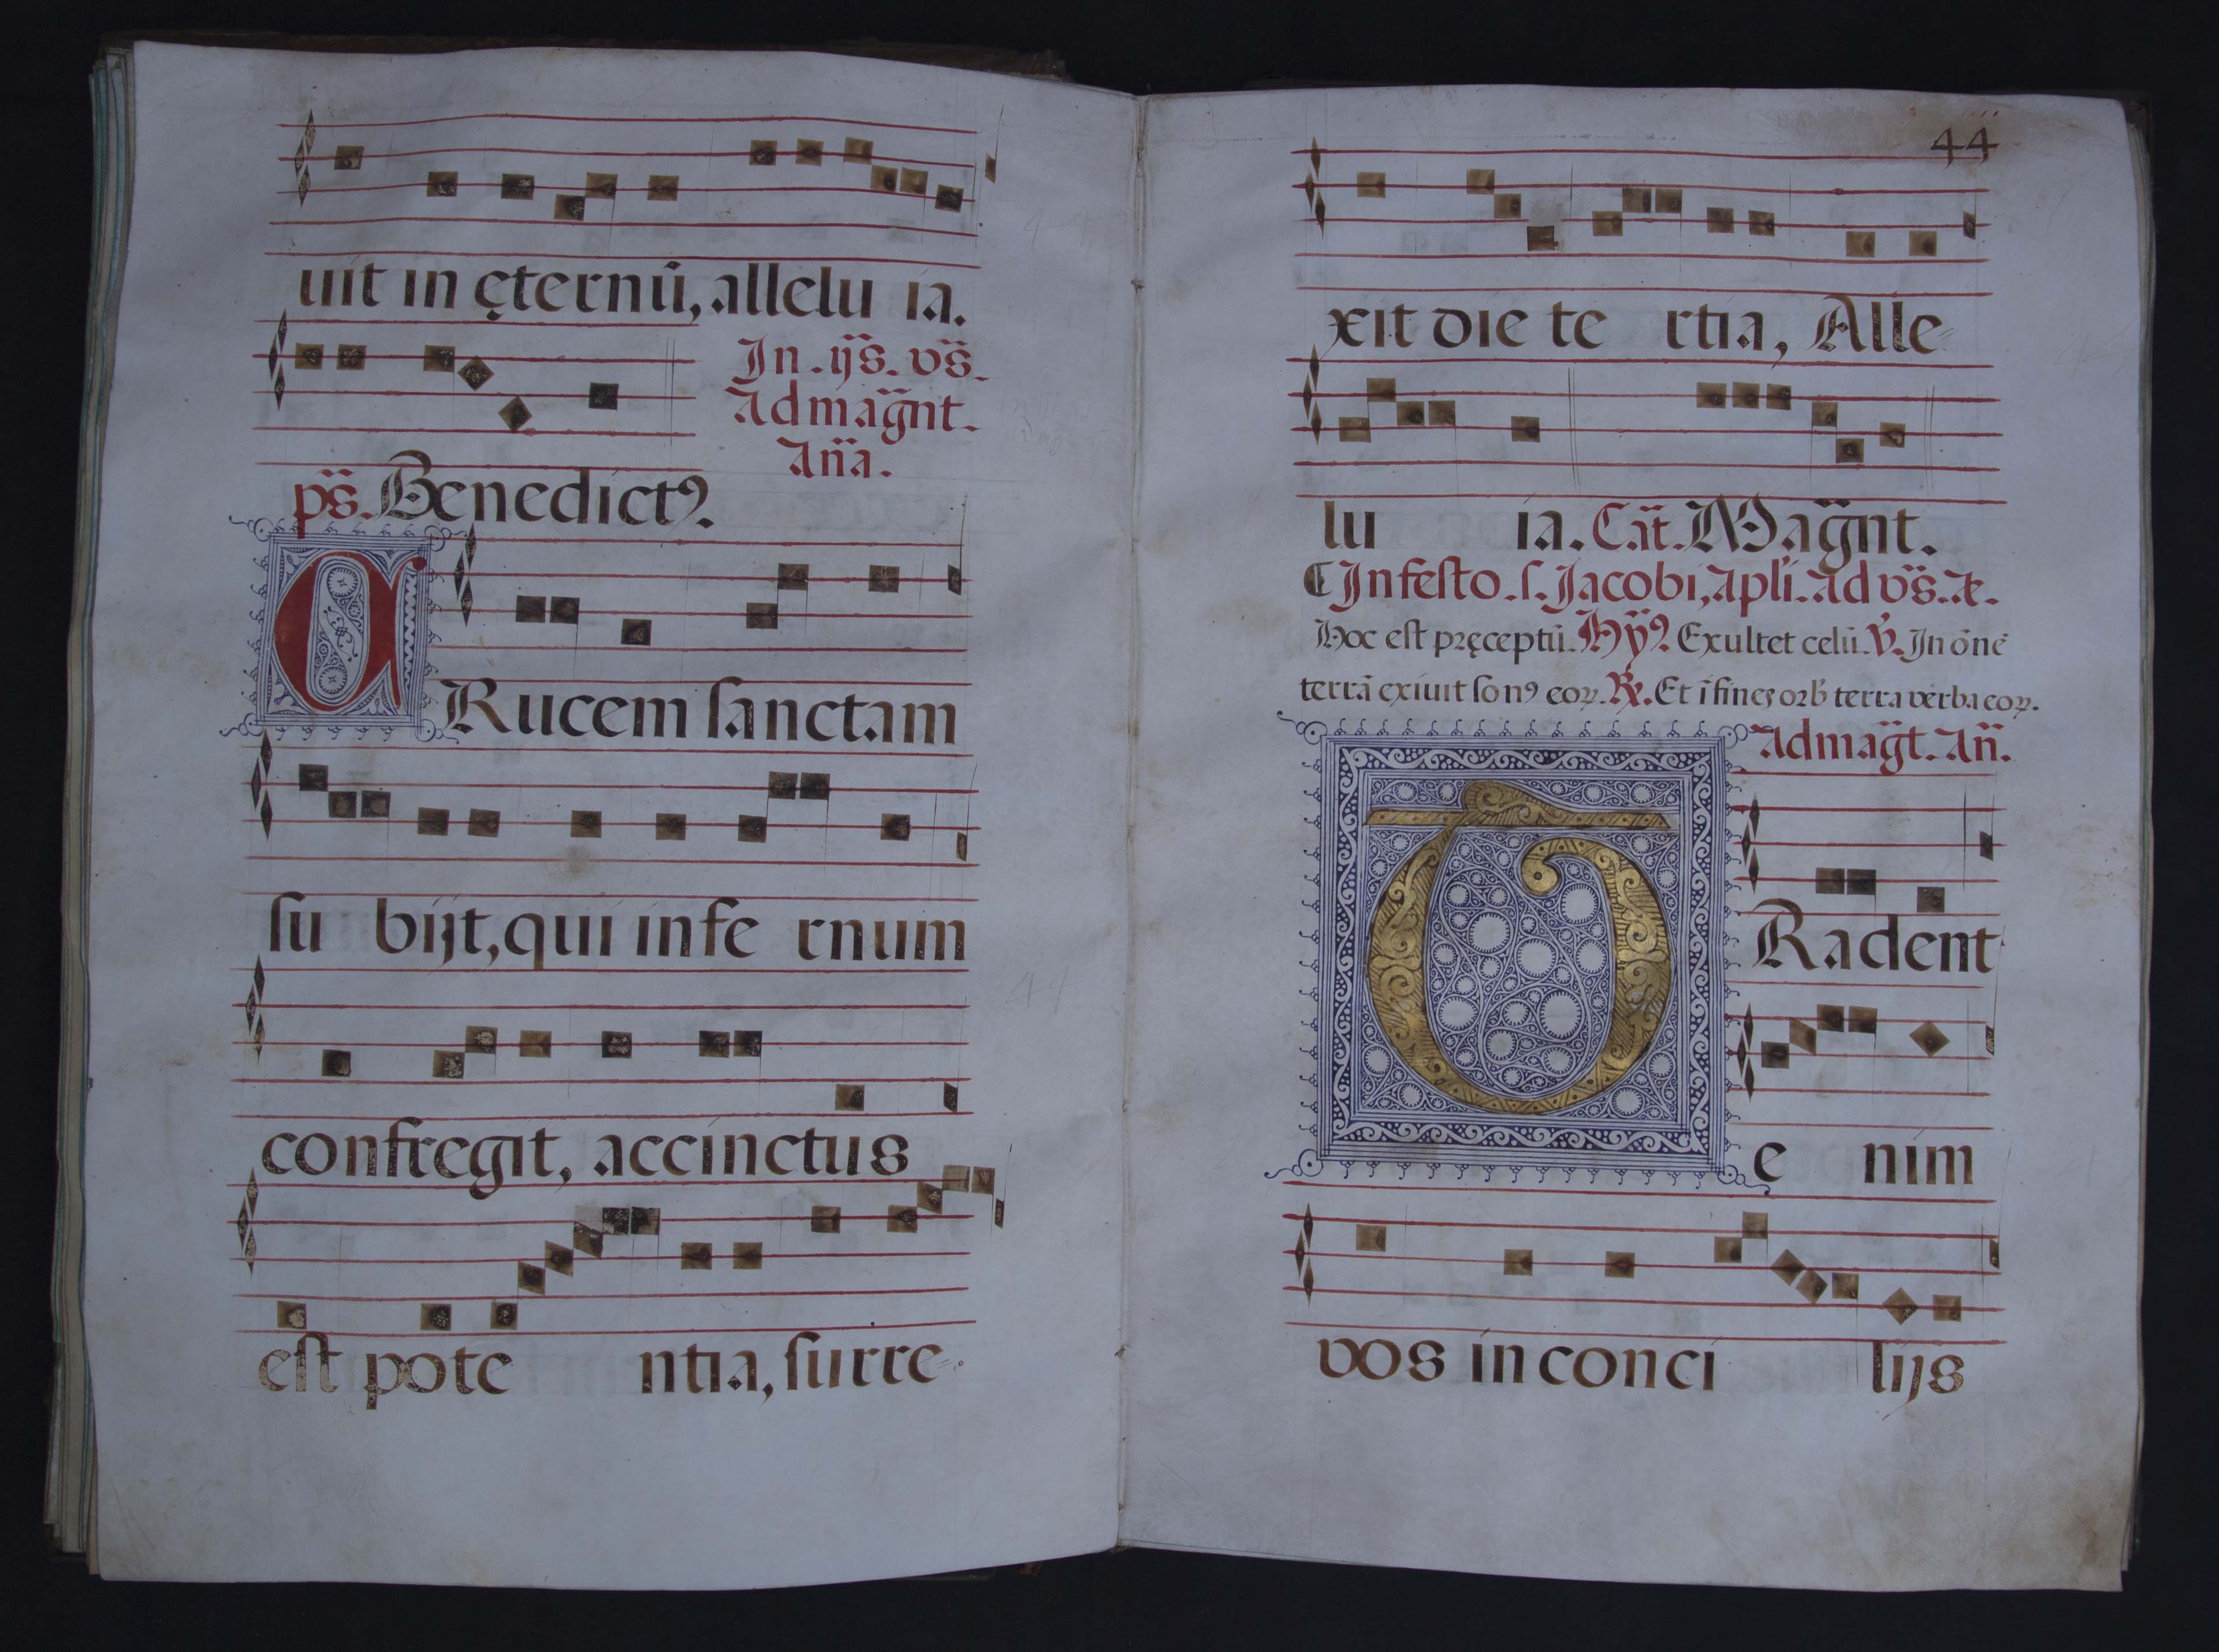 uit in ęternū, allelu ia.
In .ijs. vs̄.
Ad magn̄t.
An̄a.
ps̄. Benedictꝰ.
CRucem ſanctam
ſu bijt, qui infe rnum
confregit, accinctus
eſt pote ntia, ſurre-
44
xit die te rtia, Alle-
lu ia. Cāt. Magn̄t.
In feſto. ſ. Jacobi, apl̄i. ad vs̄. æ.
Hoc eſt pręceptū. Hȳꝰ. Exultet celū. V̄. In ōnē
terrā exiuit ſonꝰ eoꝝ. ℟. Et ī fines orb̄ terra verba eoꝝ.
Ad maḡt. An̄.
TRadent
e nim
vos in conci lijs